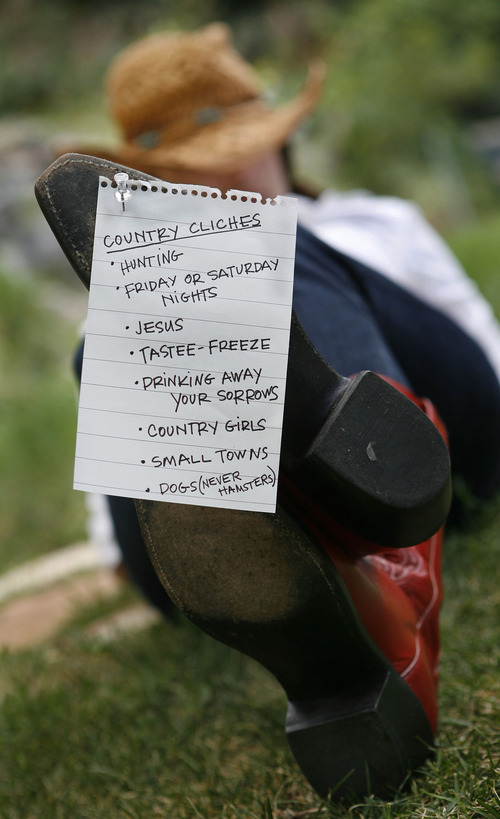 COUNTRY CLICHES
• HUNTING
• FRIDAY OR SATURDAY
NIGHTS
• JESUS
• TASTEE-FREEZE
• DRINKING AWAY
YOUR SORROWS
• COUNTRY GIRLS
• SMALL TOWNS
• DOGS (NEVER
HAMSTERS)